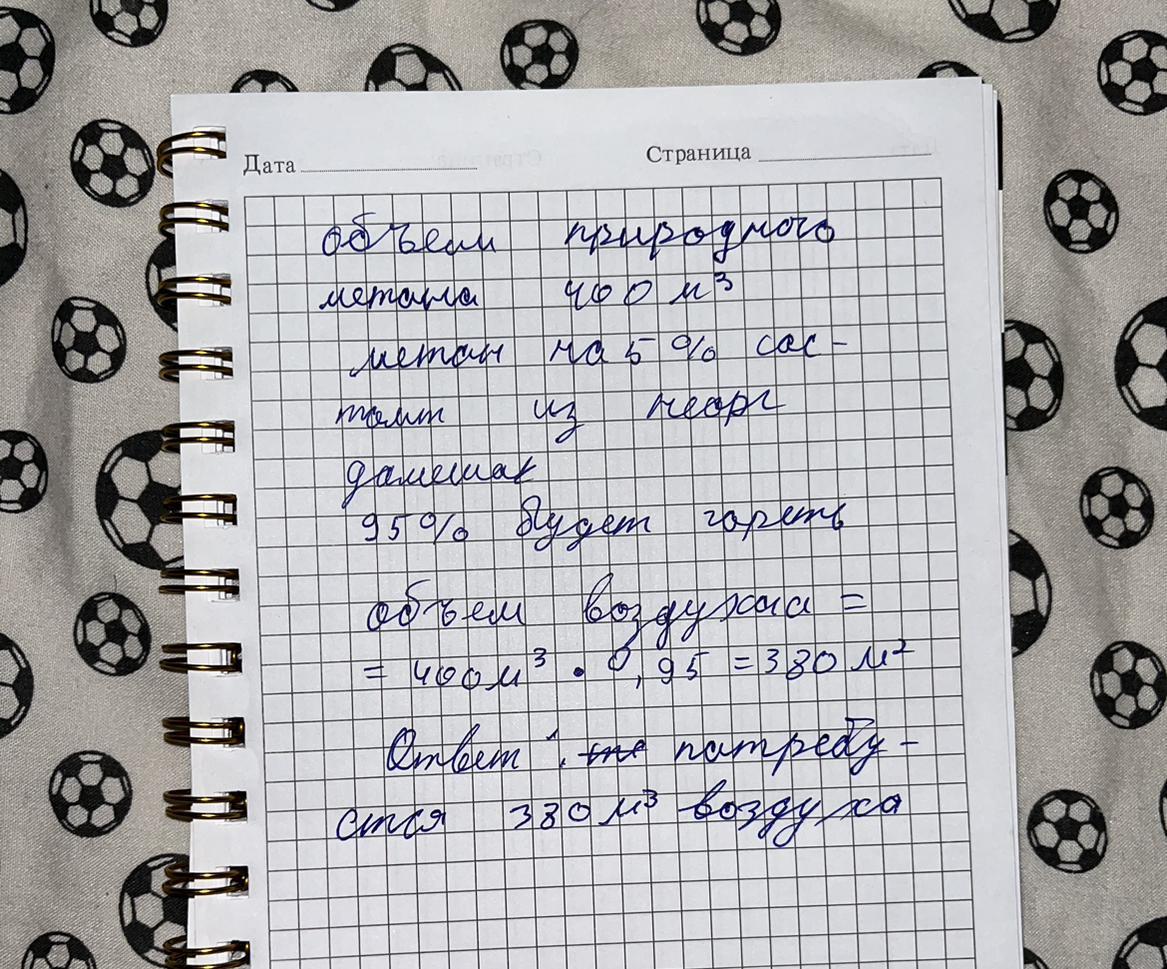 Дата Страница
объем природного
метана 400 м³
метан на 5 % сос-
тоит из неорг
дамешак
95% будет гореть
объем воздухма =
= 400м³ · 0,95 = 380 м²
Ответ: патребу-
ется 380 м³ воздуха